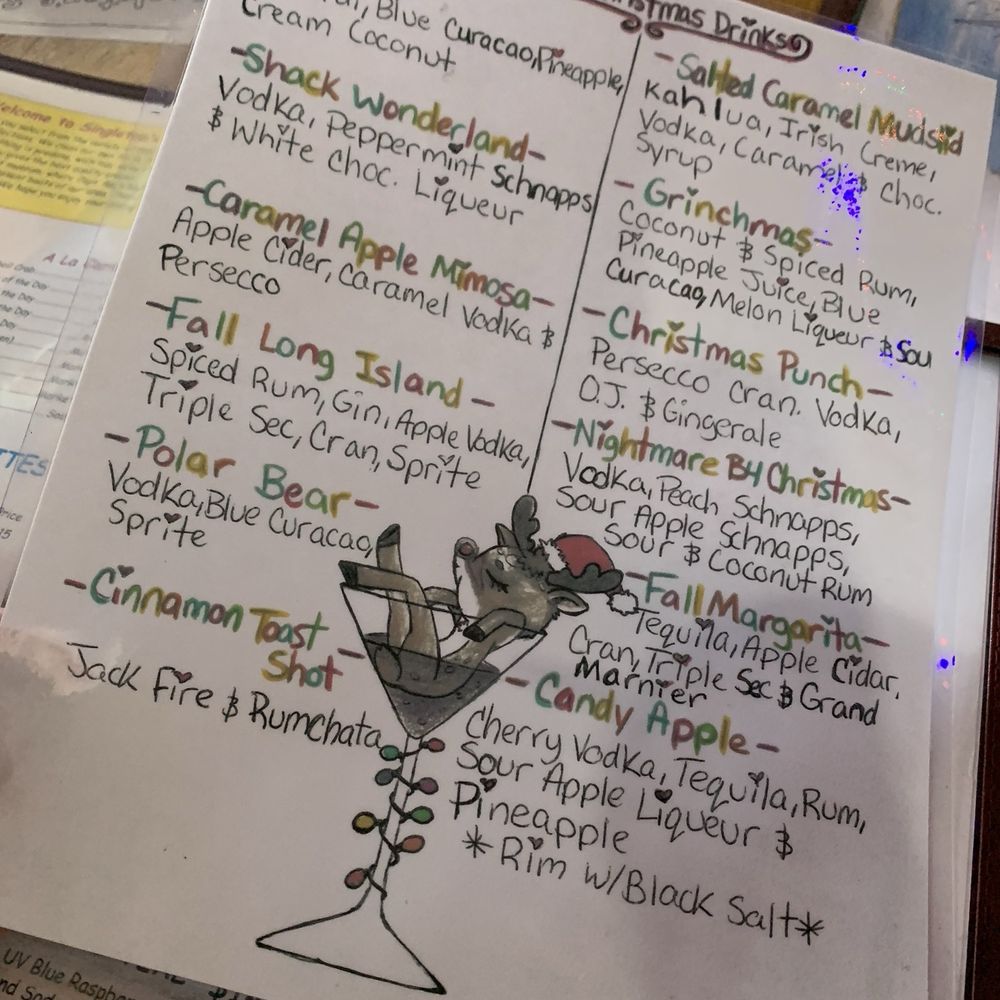 Christmas Drinks
Blue Curacao, Pineapple,
Cream Coconut
-Shack Wonderland-
Vodka, Peppermint Schnapps
$ White Choc. Liqueur
-Caramel Apple Mimosa-
Apple Cider, Caramel Vodka $
Persecco
-Fall Long Island-
Spiced Rum, Gin, Apple Vodka,
Triple Sec, Cran, Sprite
-Polar Bear-
Vodka, Blue Curacao,
Sprite
-Cinnamon Toast
Shot-
Jack Fire $ Rumchata
-Salted Caramel Mudslid
Kahlua, Irish Creme,
Vodka, Caramel $ Choc.
Syrup
-Grinchmas-
Coconut $ Spiced Rum,
Pineapple Juice, Blue
Curacao, Melon Liqueur $ Sou
-Christmas Punch-
Persecco Cran. Vodka,
O.J. $ Gingerale
-Nightmare B4 Christmas-
Vodka, Peach Schnapps,
Sour Apple Schnapps,
Sour $ Coconut Rum
-Fall Margarita-
Tequila, Apple Cidar,
Cran, Triple Sec $ Grand
Marnier
-Candy Apple-
Cherry Vodka, Tequila, Rum,
Sour Apple Liqueur $
Pineapple
*Rim w/Black Salt*
Welcome To Singleton
A La
of the Day
the Day
the Day
Day
TTES
Price
15
UV Blue Raspb